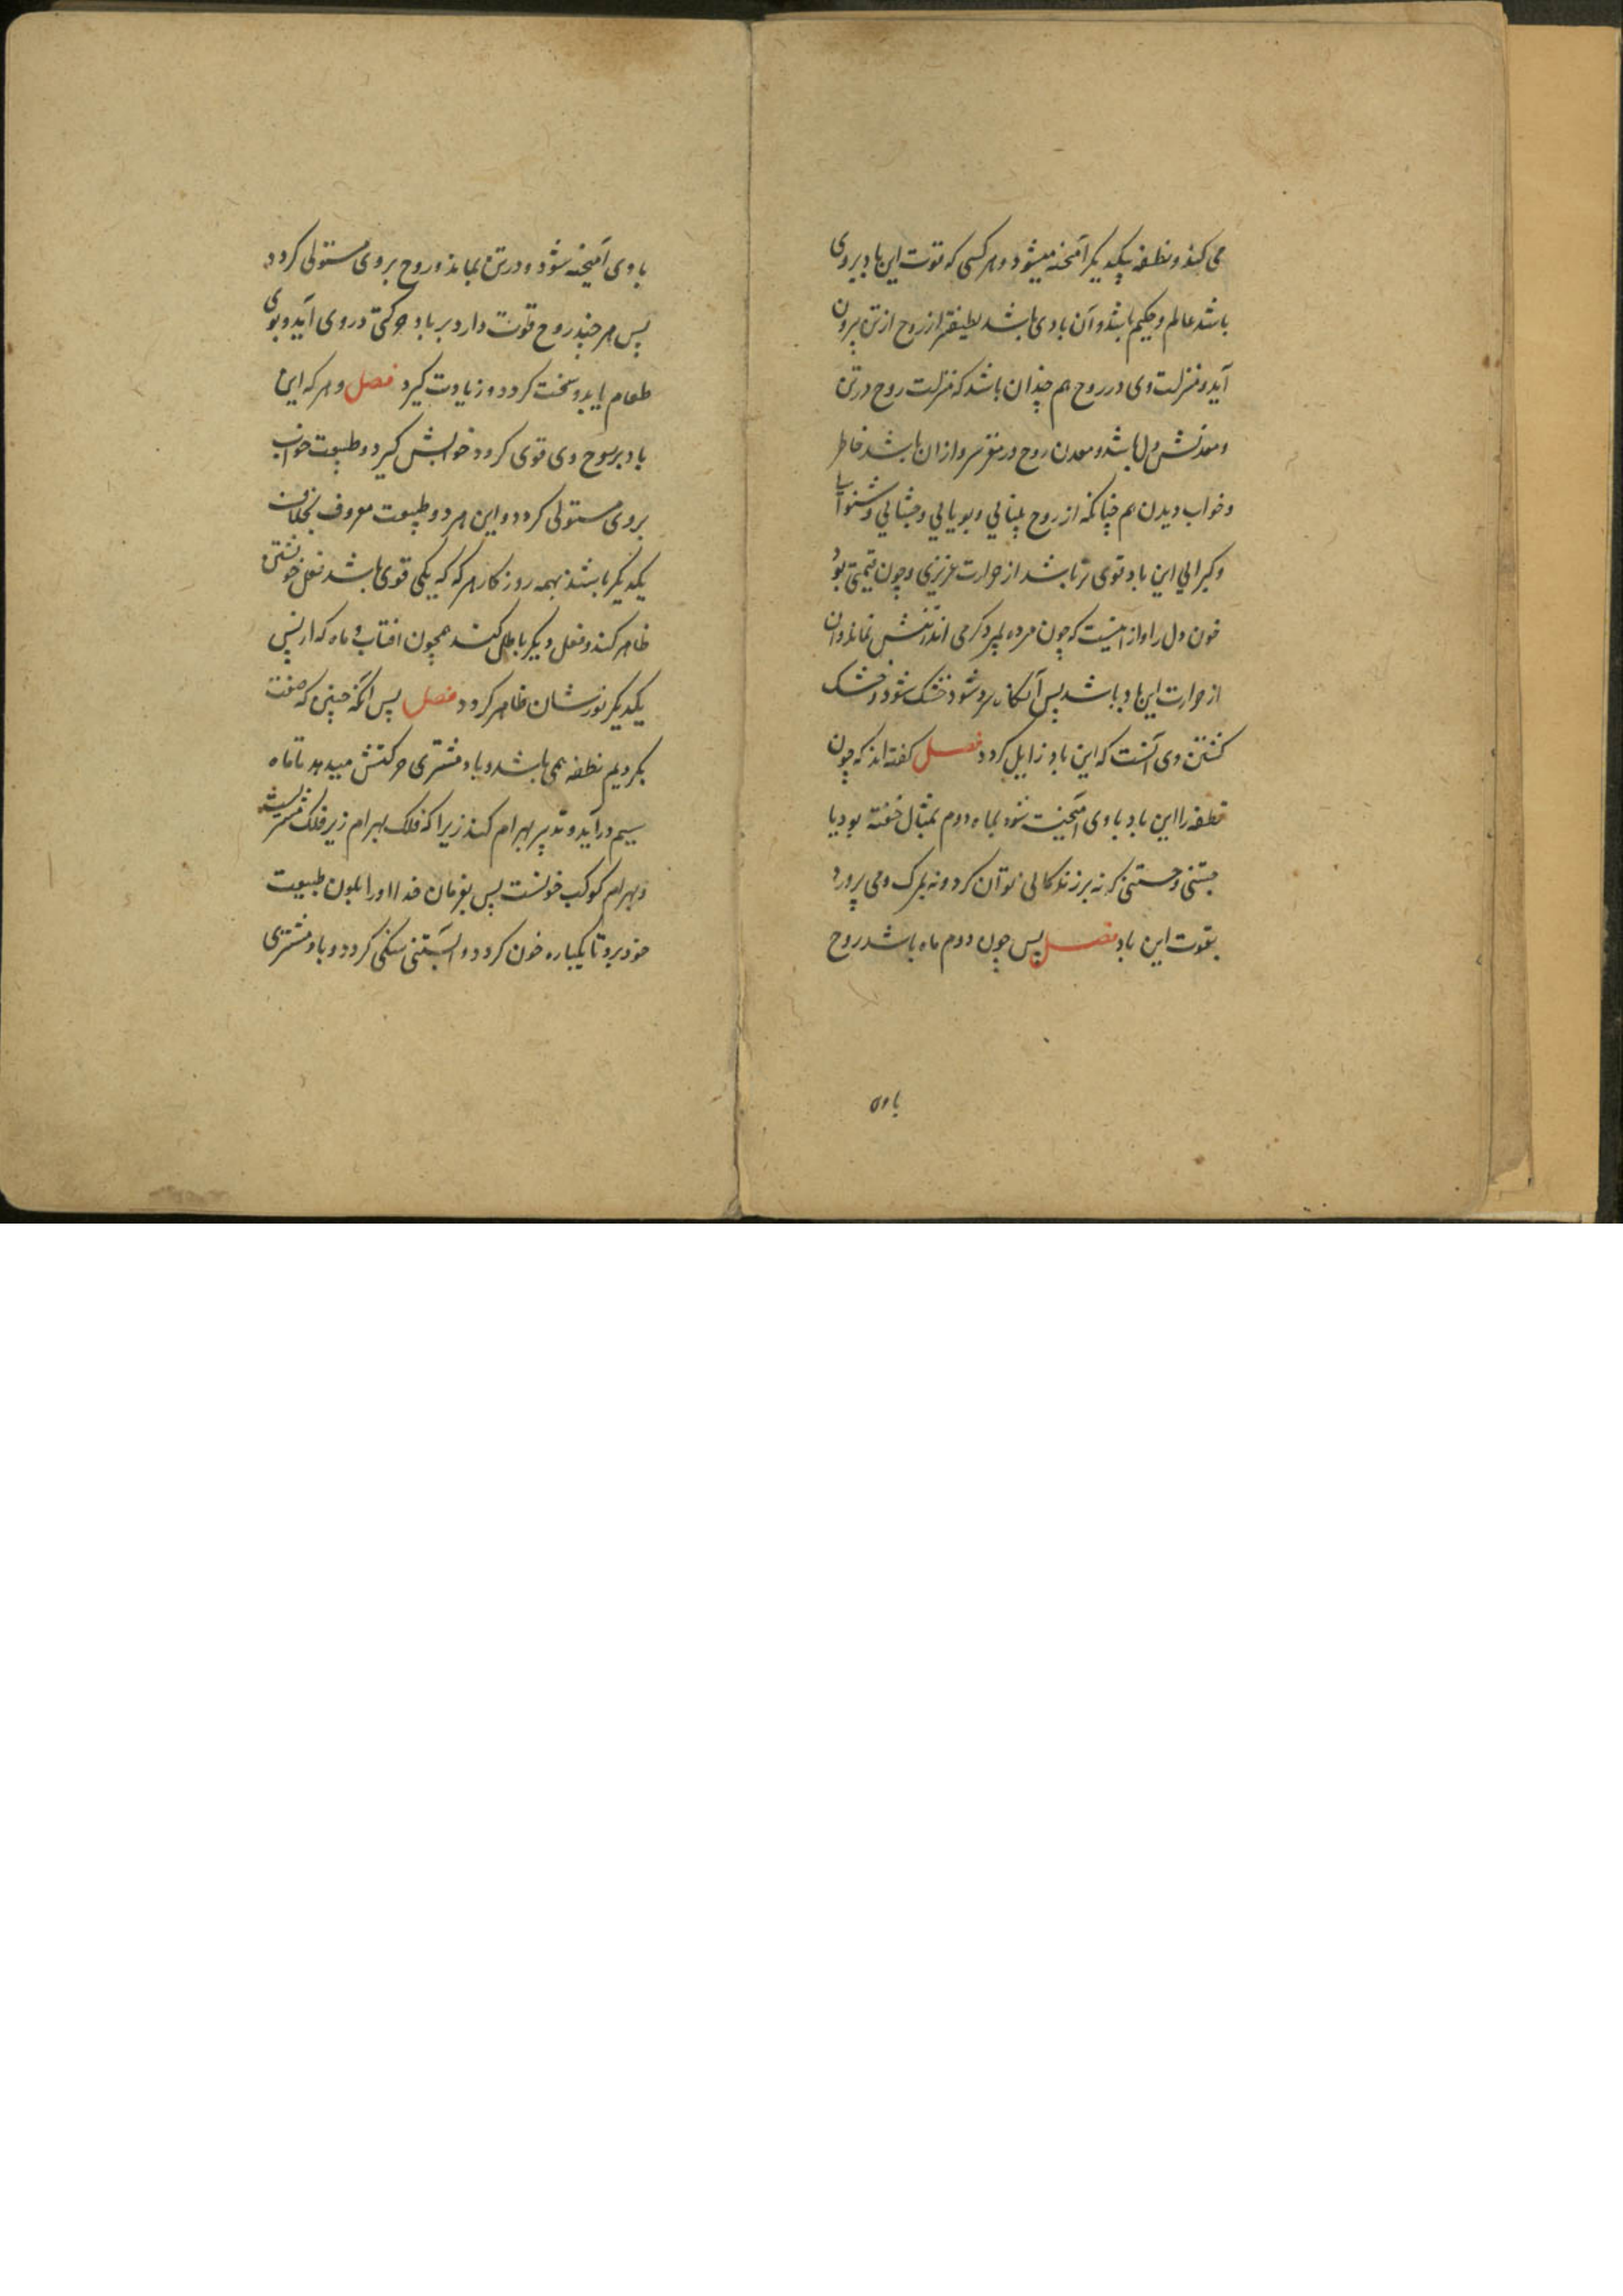 می کند و نطفه بیکدیگر آمیخته میشود و هر کسی که قوت این باد بروی
باشد عالم و حکیم باشد و آن بادی باشد لطیفتر از روح از تن بیرون
آید و منزلت وی در روح هم چندان باشد که منزلت روح در تن
و معدنش دل باشد و معدن روح در مغز سر و از ان باشد خاطر
و خواب دیدن هم چنانکه از روح بینائی و بویائی و چشائی و شنوایی
و کبرائی این باد قوی تر باشد از حرارت عزیزی و چون قیمتی بود
خون دل را و از اینست که چون مرده بمیرد گرمی اندر تنش نماند و آن
از حرارت این باد باشد پس آنگاه سرد شود خشک شود و خشک
گشتن وی آنست که این باد زایل گردد فصل گفته اند که چون
نطفه را این باد با وی آمیخت شود بماه دوم بمثال خفته بود یا
جستنی و جستنی که نه بر زندگانی توان کرد و نه بمرگ و می پرورد
بقوت این باد فصل پس چون دوم ماه باشد روح
با وی
با وی آمیخته شود و در تن بماند و روح بروی مستولی گردد
پس هر چند روح قوت دارد بر باد حرکتی در وی آید و بوی
طعام یابد و سخت گردد و زیادت گیرد فصل و هر که این
باد بر روح وی قوی گردد خوابش گیرد و طبیعت خواب
بروی مستولی گردد و این هر دو طبیعت معروف بخلاف
یکدیگر باشند بهمه روزگار هر که که یکی قوی باشد فعل خویشتن
ظاهر کند و فعل دیگر باطل کند همچون افتاب و ماه که از پس
یکدیگر نورشان ظاهر گردد فصل پس انگه چنین که صفت
بکردیم نطفه همی باشد و باد مشتری حرکتش میدهد تا ماه
سیم در آید و تدبیر بهرام کند زیرا که فلک بهرام زیر فلک مشتریست
و بهرام کوکب خونست پس بفرمان خدا او را بلون طبیعت
خود برد تا یکباره خون گردد و آبستنی سنگی گردد و باد مشتری